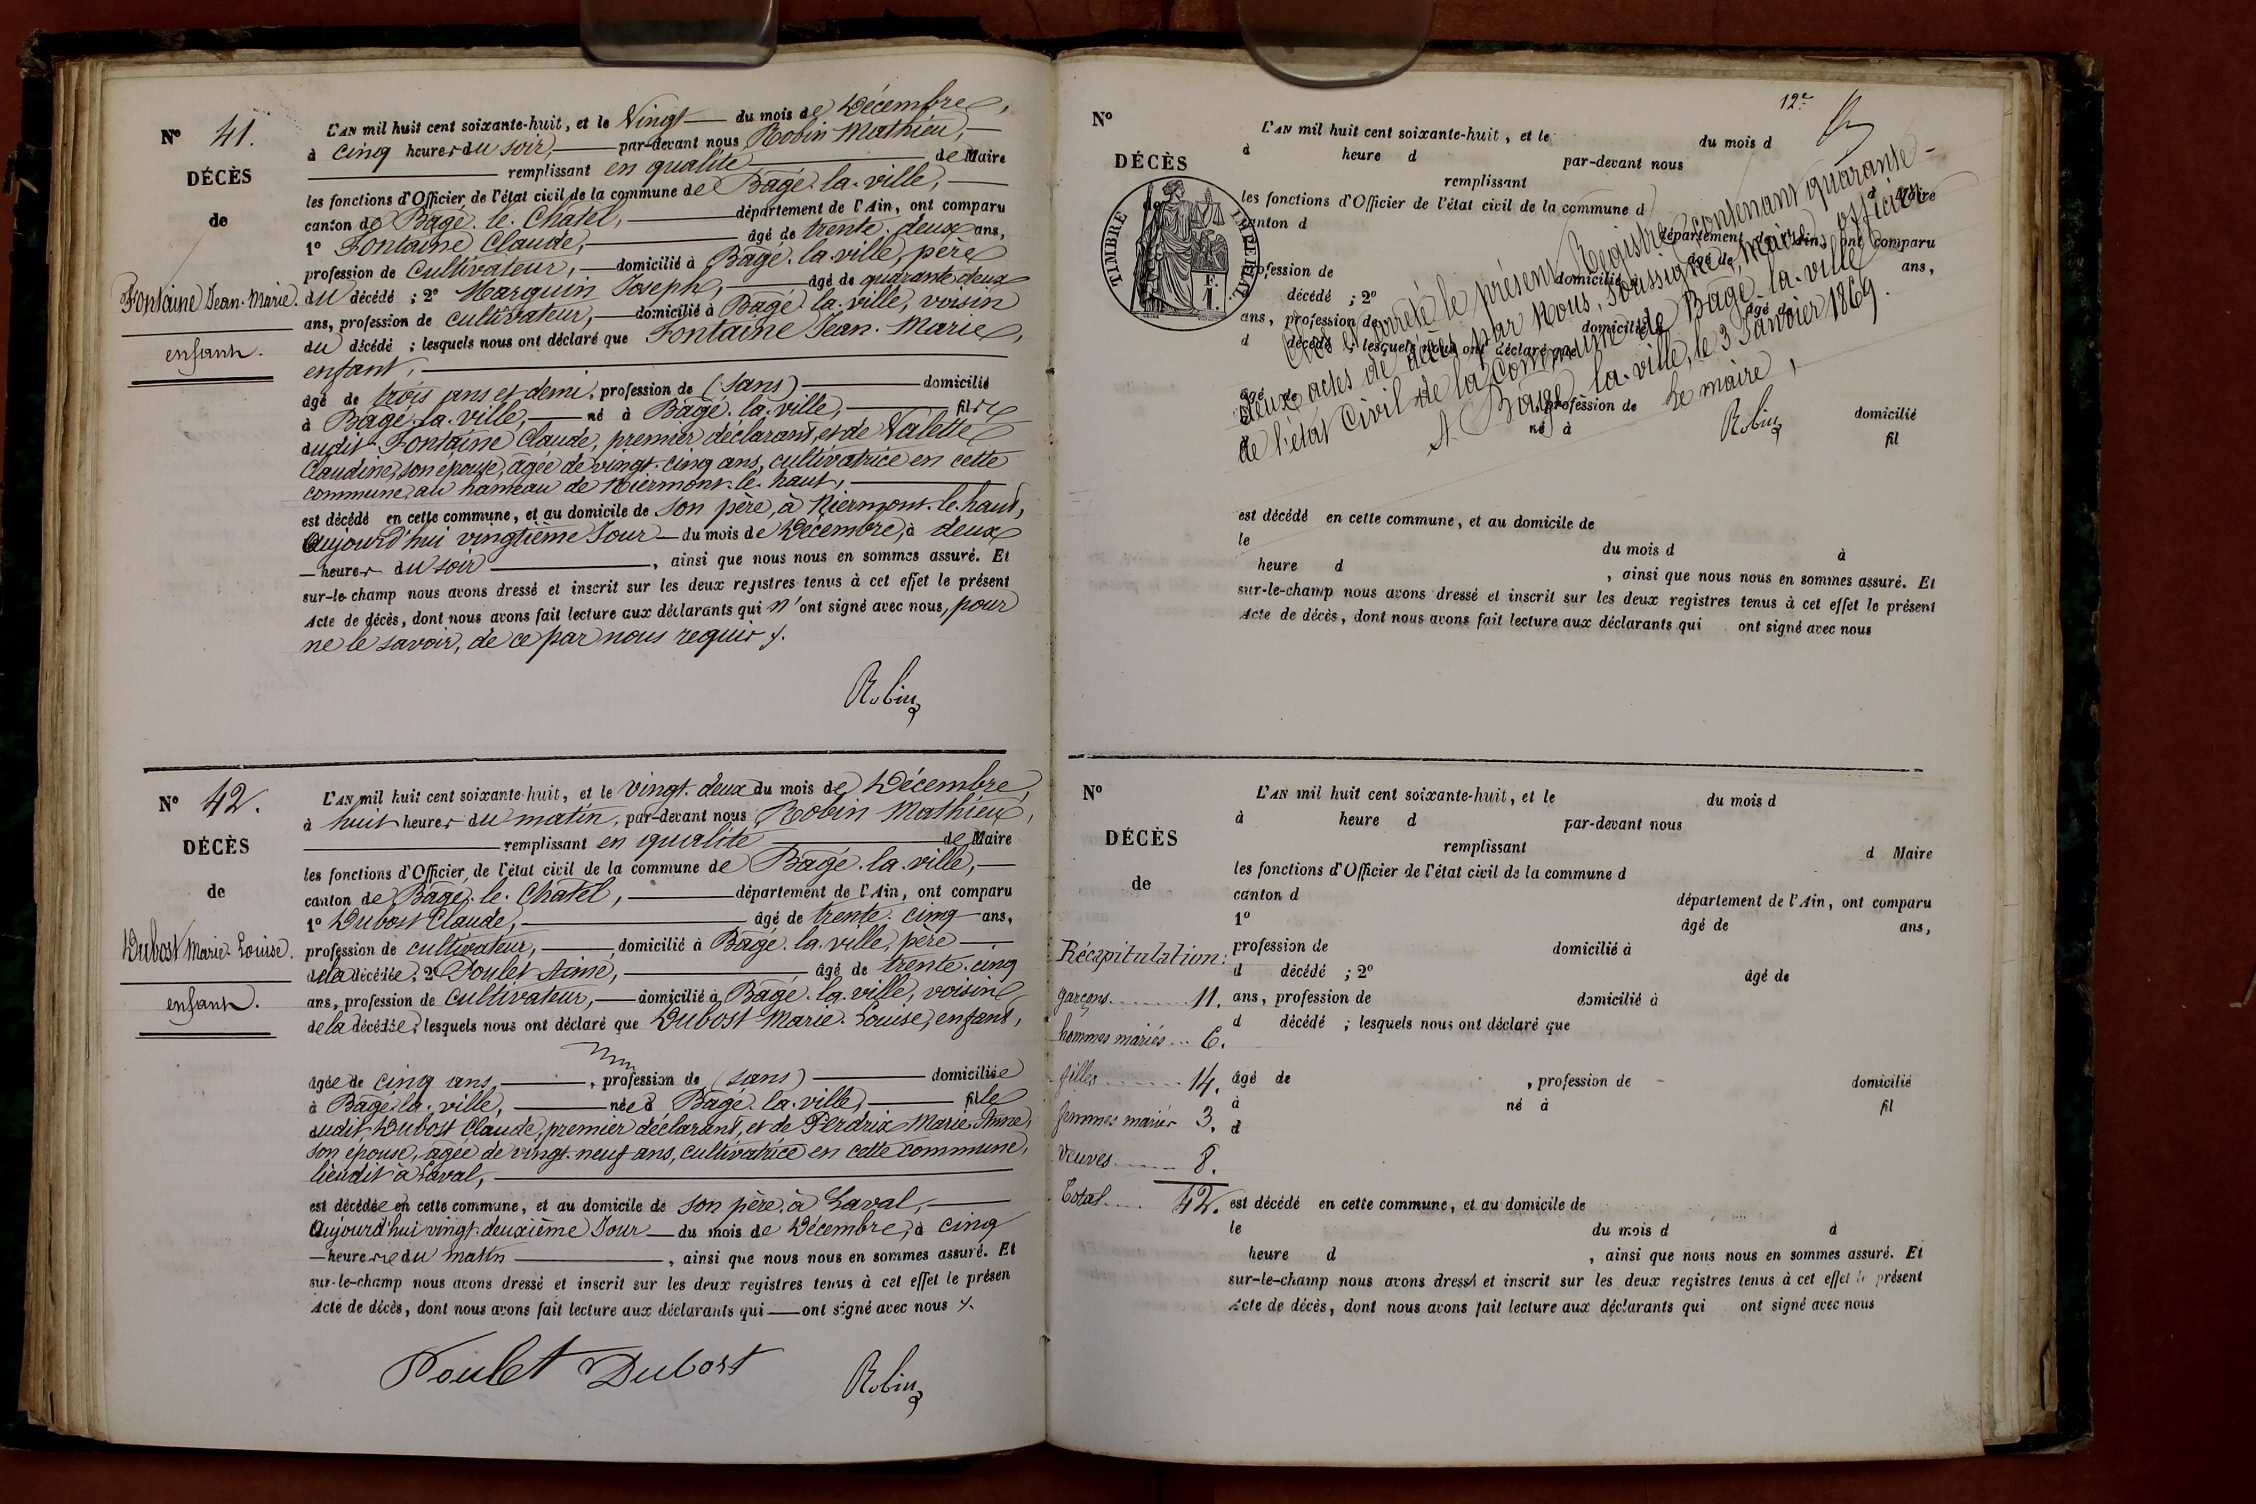 N° 41.
DÉCÈS
de
Fontaine Jean-Marie.
enfant.
L'AN mil huit cent soixante-huit, et le Vingt du mois de Décembre,
à cinq heures du soir, par-devant nous Robin Mathieu,
remplissant en qualité de Maire
les fonctions d'Officier de l'état civil de la commune de Bagé-la-ville,
canton de Bagé-le-Châtel, département de l'Ain, ont comparu
1° Fontaine Claude, âgé de trente-deux ans,
profession de cultivateur, domicilié à Bagé-la-ville, père
du décédé ; 2° Marquin Joseph, âgé de quarante-deux
ans, profession de cultivateur, domicilié à Bagé-la-ville, voisin
du décédé ; lesquels nous ont déclaré que Fontaine Jean-Marie,
enfant,
âgé de trois ans et demi, profession de (sans) domicilié
à Bagé-la-ville, né à Bagé-la-ville, fils
dudit Fontaine Claude, premier déclarant, et de Valette
Claudine, son épouse, âgée de vingt-cinq ans, cultivatrice en cette
commune, au hameau de Niermont-le-haut,
est décédé en cette commune, et au domicile de son père, à Niermont-le-haut,
Aujourd'hui vingtième Jour du mois de Décembre, à deux
heures du soir , ainsi que nous nous en sommes assuré. Et
sur-le-champ nous avons dressé et inscrit sur les deux registres tenus à cet effet le présent
Acte de décès, dont nous avons fait lecture aux déclarants qui n'ont signé avec nous, pour
ne le savoir, de ce par nous requis ./.
Robin
N° 42.
DÉCÈS
de
Dubost Marie-Louise.
enfant.
L'AN mil huit cent soixante-huit, et le vingt-deux du mois de Décembre,
à huit heures du matin, par-devant nous Robin Mathieu,
remplissant en qualité de Maire
les fonctions d'Officier de l'état civil de la commune de Bagé-la-ville,
canton de Bagé-le-Châtel, département de l'Ain, ont comparu
1° Dubost Claude, âgé de trente-cinq ans,
profession de cultivateur, domicilié à Bagé-la-ville, père
de la décédée ; 2° Poulet Aimé, âgé de trente-cinq
ans, profession de cultivateur, domicilié à Bagé-la-ville, voisin
de la décédée ; lesquels nous ont déclaré que Dubost Marie-Louise, enfant,
âgée de cinq ans, , profession de (sans) domiciliée
à Bagé-la-ville, née à Bagé-la-ville, fille
dudit Dubost Claude, premier déclarant, et de Perdrix Marie-Anne,
son épouse, âgée de vingt-neuf ans, cultivatrice en cette commune,
lieudit à Laval,
est décédée en cette commune, et au domicile de son père, à Laval,
Aujourd'hui vingt-deuxième Jour du mois de Décembre, à cinq
heures du matin , ainsi que nous nous en sommes assuré. Et
sur-le-champ nous avons dressé et inscrit sur les deux registres tenus à cet effet le présen
Acte de décès, dont nous avons fait lecture aux déclarants qui ont signé avec nous ./.
Poulet Dubost Robin
12e
N°
DÉCÈS
de
TIMBRE IMPÉRIAL
F. 1.
L'AN mil huit cent soixante-huit, et le du mois d
à heure d par-devant nous
remplissant d Maire
les fonctions d'Officier de l'état civil de la commune d
canton d département de l'Ain, ont comparu
âgé de ans,
profession de domicilié à
décédé ; 2° âgé de
ans, profession de domicilié à
d décédé ; lesquels nous ont déclaré que
âgé de , profession de domicilié
né à fil
d
Clos et arrêté le présent Registre contenant quarante-
deux actes de décès par Nous, soussigné, Maire, officier
de l'état civil de la Commune de Bagé-la-ville
A Bagé-la-ville, le 3 Janvier 1869.
Le maire,
Robin
est décédé en cette commune, et au domicile de
le du mois d à
heure d , ainsi que nous nous en sommes assuré. Et
sur-le-champ nous avons dressé et inscrit sur les deux registres tenus à cet effet le présent
Acte de décès, dont nous avons fait lecture aux déclarants qui ont signé avec nous
N°
DÉCÈS
de
Récapitulation :
garçons 11.
hommes mariés 6.
filles 14.
femmes mariées 3.
veuves 8.
Total 42.
L'AN mil huit cent soixante-huit, et le du mois d
à heure d par-devant nous
remplissant d Maire
les fonctions d'Officier de l'état civil de la commune d
canton d département de l'Ain, ont comparu
1° âgé de ans,
profession de domicilié à
d décédé ; 2° âgé de
ans, profession de domicilié à
d décédé ; lesquels nous ont déclaré que
âgé de , profession de domicilié
à né à fil
d
est décédé en cette commune, et au domicile de
le du mois d à
heure d , ainsi que nous nous en sommes assuré. Et
sur-le-champ nous avons dressé et inscrit sur les deux registres tenus à cet effet le présent
Acte de décès, dont nous avons fait lecture aux déclarants qui ont signé avec nous